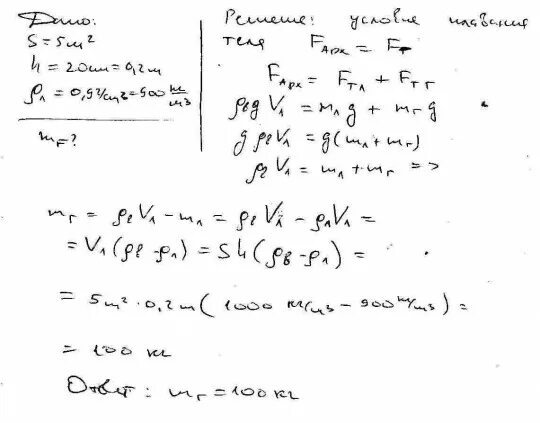 Дано:
S = 5м²
h = 20см = 0,2м
ρл = 0,9г/см3 = 900 кг/м3
mг?
Решение: условие плавания
тела Fарх = Fт
Fарх = Fтл + Fтг
ρвg Vл = mлg + mгg
g ρвVл = g(mл + mг)
ρвVл = mл + mг =>
mг = ρвVл - mл = ρвVл - ρлVл =
= Vл(ρв - ρл) = Sh(ρв - ρл) =
= 5м² · 0,2м(1000 кг/м3 - 900кг/м3) =
= 100 кг
Ответ: mг = 100кг